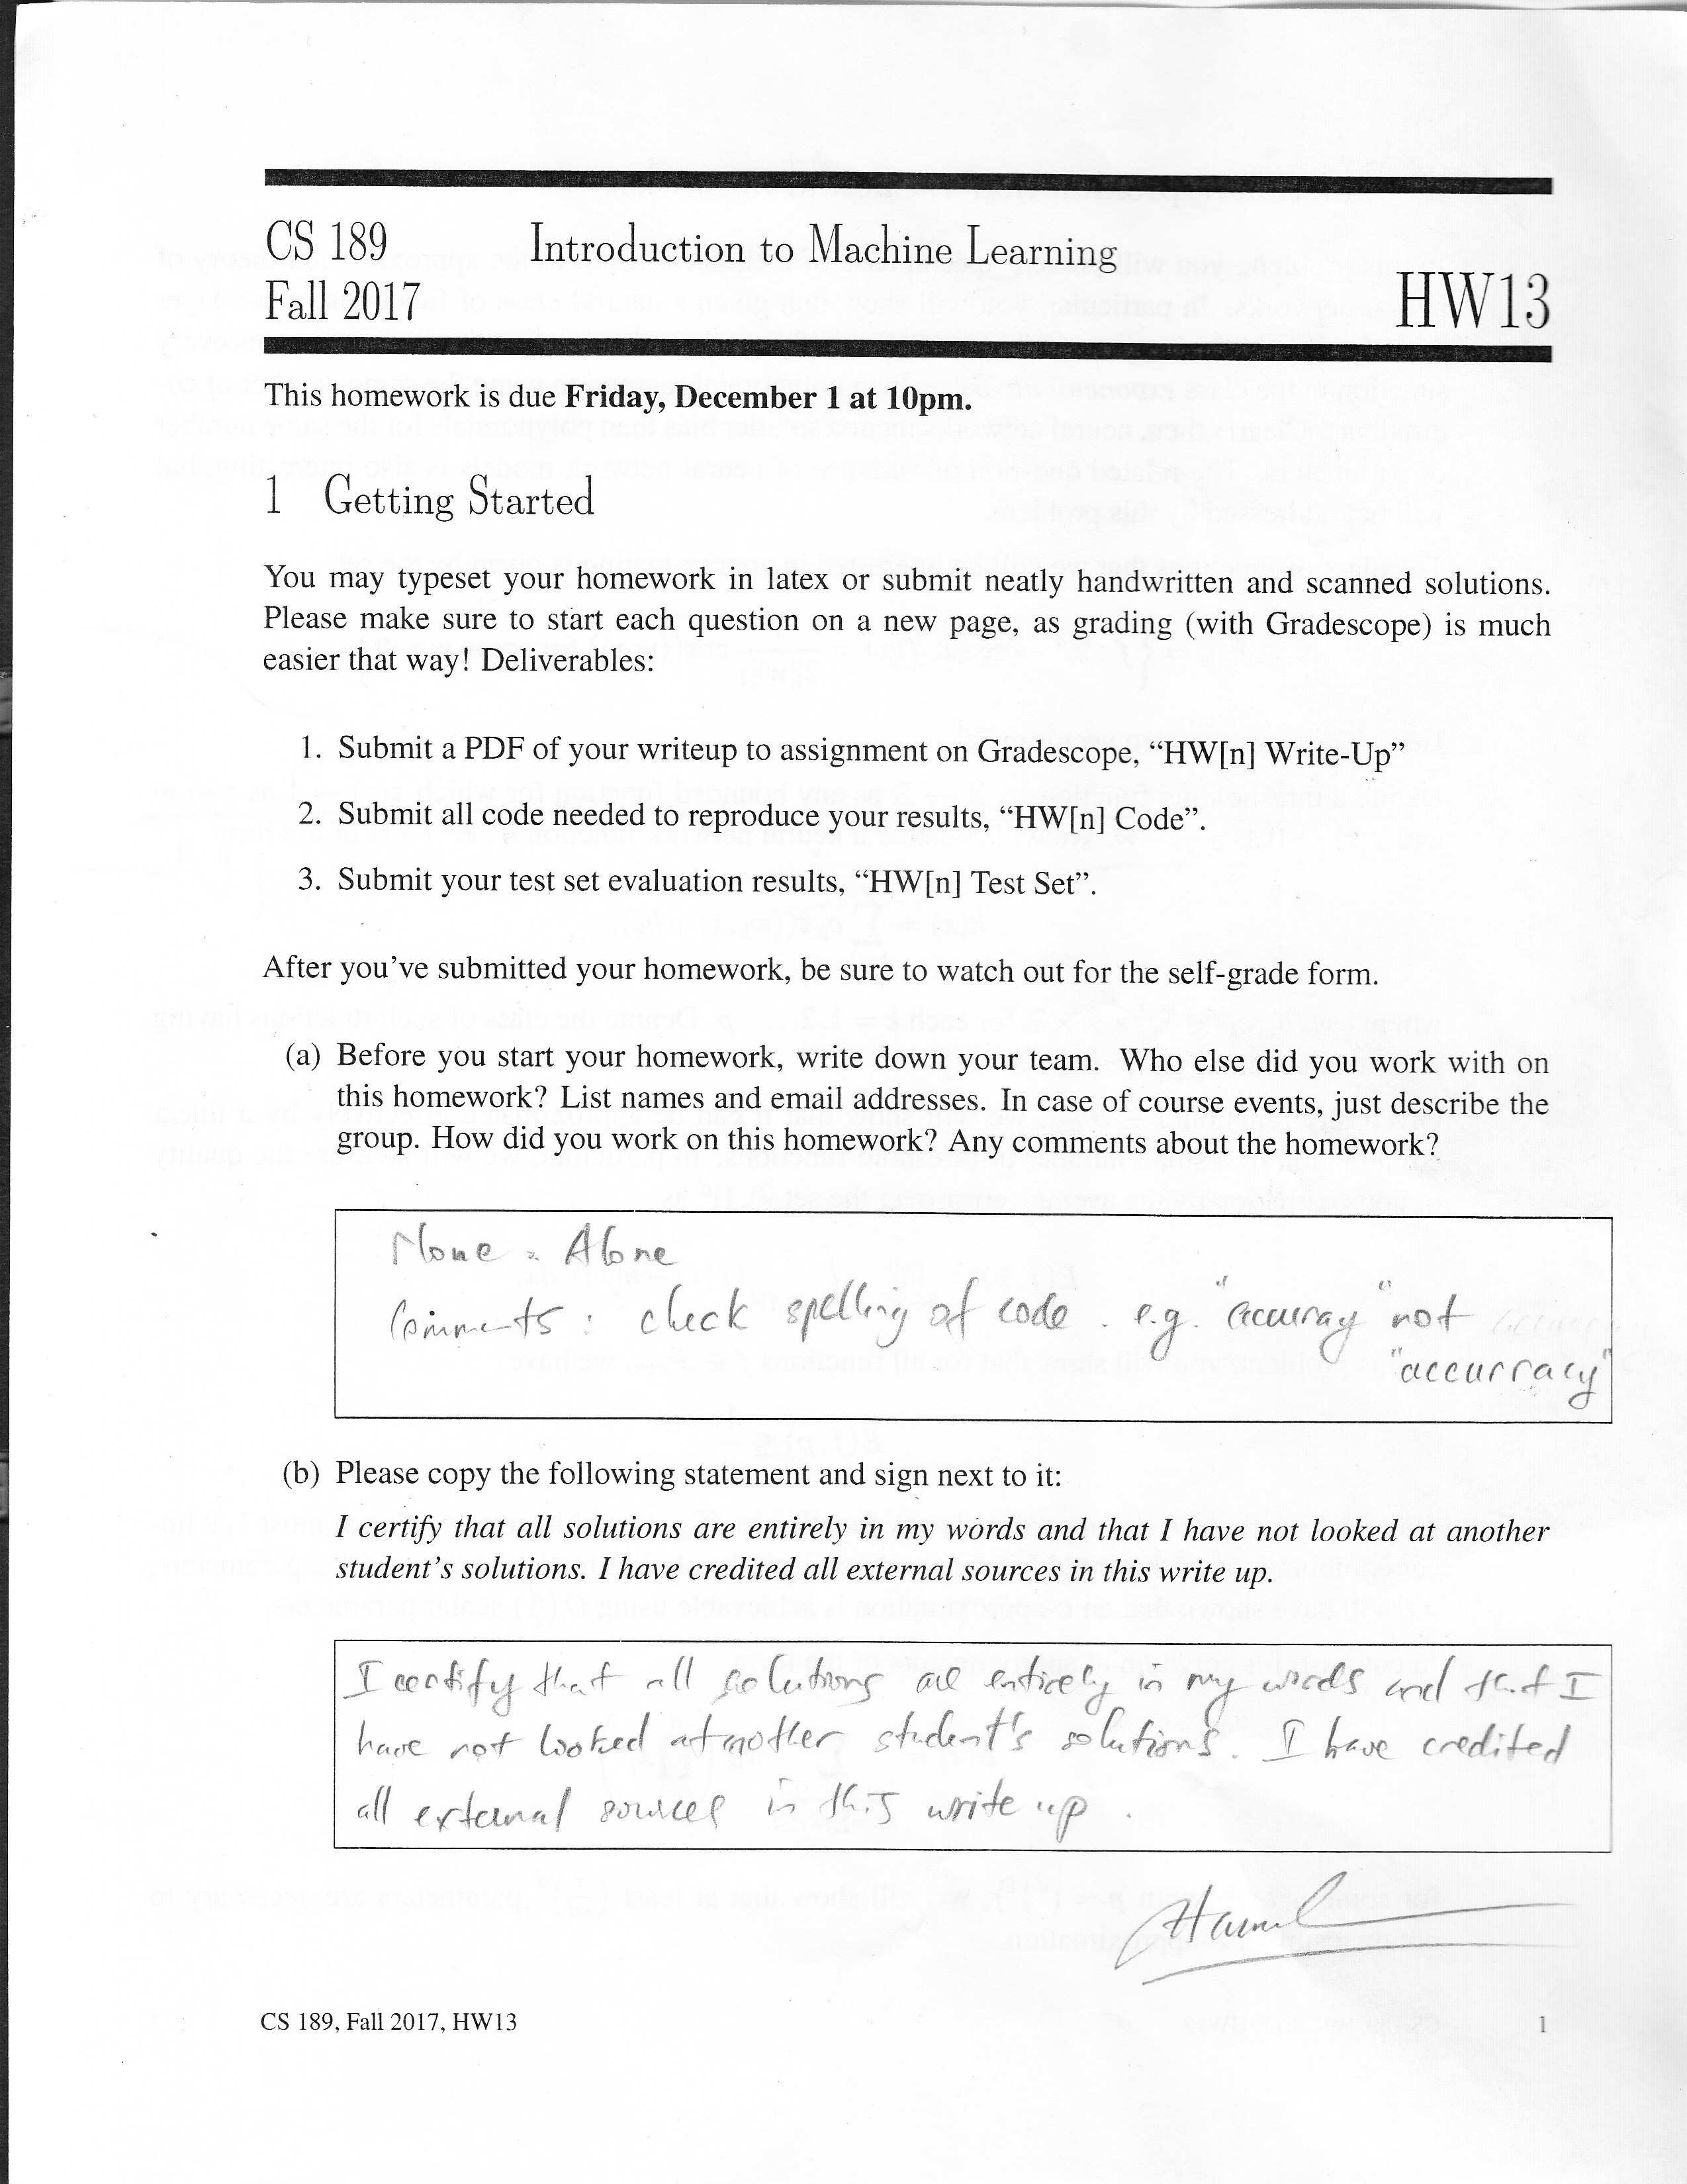 CS 189 Introduction to Machine Learning
Fall 2017 HW13
This homework is due Friday, December 1 at 10pm.
1 Getting Started
You may typeset your homework in latex or submit neatly handwritten and scanned solutions.
Please make sure to start each question on a new page, as grading (with Gradescope) is much
easier that way! Deliverables:
1. Submit a PDF of your writeup to assignment on Gradescope, “HW[n] Write-Up”
2. Submit all code needed to reproduce your results, “HW[n] Code”.
3. Submit your test set evaluation results, “HW[n] Test Set”.
After you've submitted your homework, be sure to watch out for the self-grade form.
(a) Before you start your homework, write down your team. Who else did you work with on
this homework? List names and email addresses. In case of course events, just describe the
group. How did you work on this homework? Any comments about the homework?
None. Alone
Comments: check spelling of code. e.g. "accuray" not
"accurracy"
(b) Please copy the following statement and sign next to it:
I certify that all solutions are entirely in my words and that I have not looked at another
student's solutions. I have credited all external sources in this write up.
I certify that all solutions are entirely in my words and that I
have not looked at another student's solutions. I have credited
all external sources in this write up.
CS 189, Fall 2017, HW13 1